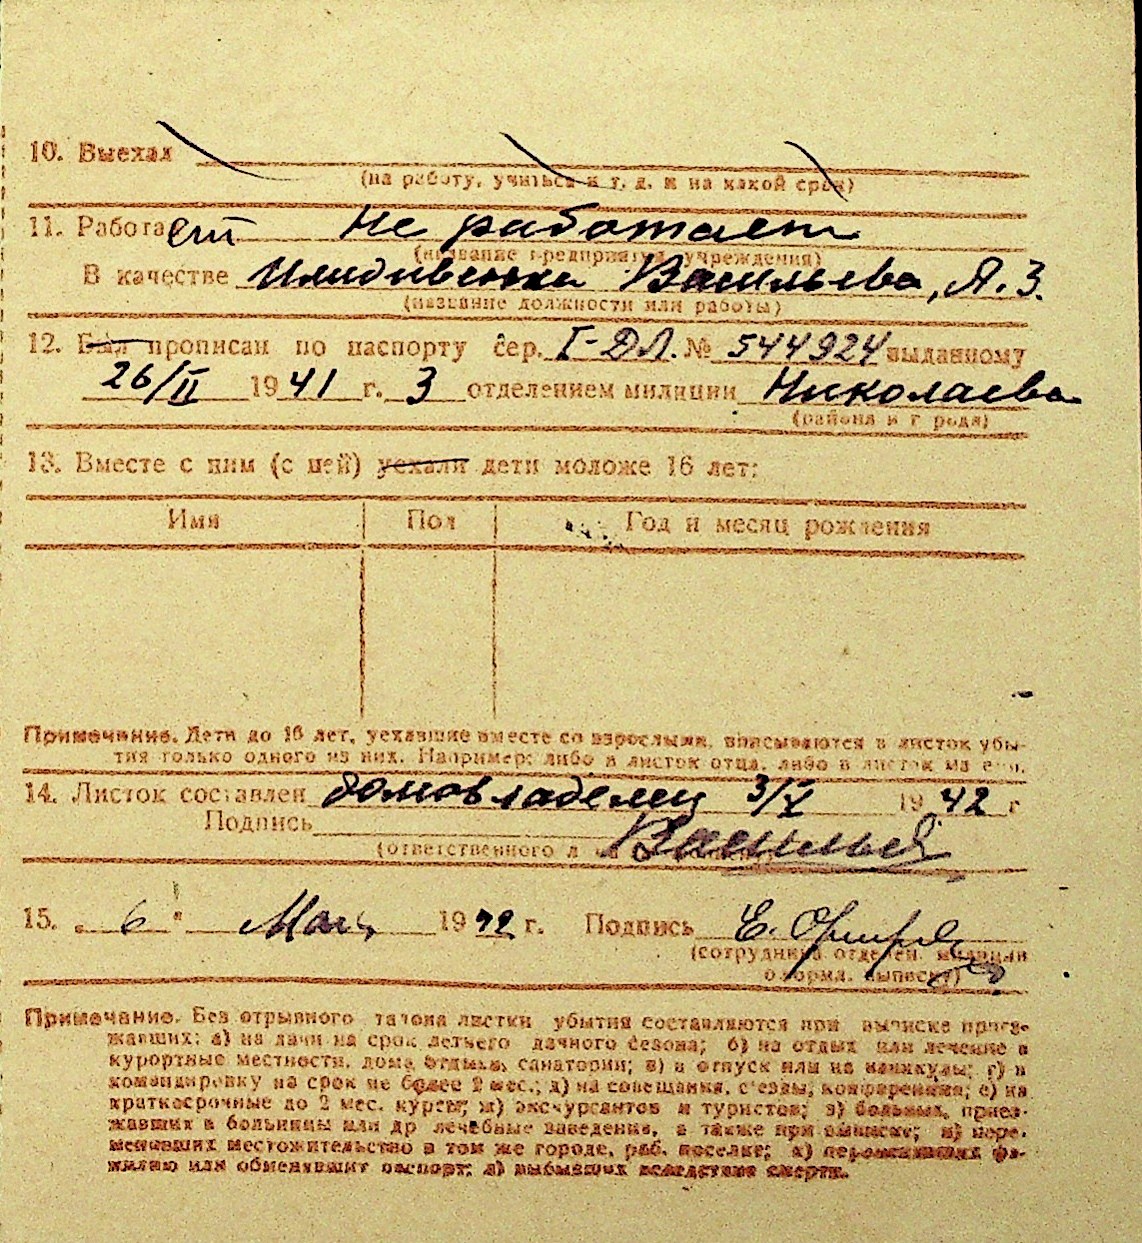 10. Выехал
(на работу, учиться и т. д. и на какой срок)
11. Работает Не работает
(название предприятия, учреждения)
В качестве Иждивенка Васильева, Я. З.
(название должности или работы)
12. Был прописан по паспорту сер. I-ДЛ. № 544924 выданному
26/II 1941 г. 3 отделением милиции Николаева
(района и города)
13. Вместе с ним (с ней) уехали дети моложе 16 лет:
Имя Пол Год и месяц рождения
Примечание. Дети до 16 лет, уехавшие вместе со взрослыми, вписываются в листок убы-
тия только одного из них. Например: либо в листок отца, либо в листок матери.
14. Листок составлен домовладелец 3/V 1942 г
Подпись Васильев
(ответственного
15. „ 6 " Мая 1942 г. Подпись Е.
(сотрудника отделен. милиции
оформл. выписку)
Примечание. Без отрывного талона листки убытия составляются при выписке приез-
жавших: а) на дачи на срок летнего дачного сезона; б) на отдых или лечение в
курортные местности, дома отдыха, санатории; в) в отпуск или на каникулы; г) в
командировку на срок не более 2 мес.; д) на совещания, съезды, конференции; е) на
краткосрочные до 2 мес. курсы; ж) экскурсантов и туристов; з) больных, приез-
жавших в больницы или др лечебные заведения, а также при выписке; и) пере-
менивших местожительство в том же городе, раб. поселке; к) переменивших фа-
милию или обменявших паспорт; л) выбывших вследствие смерти.